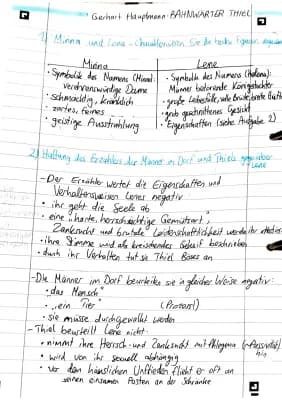 Gerhart Hauptmann: BAHNWÄRTER THIEL
1) Minna und Lene - Charakterisieren Sie die beiden Figuren
Minna
Lene
• Symbolik des Namens (Minne):
verehrenswürdige Dame
• schmächtig, kränklich
• zartes, feines
• geistige Ausstrahlung
• Symbolik des Namens (Helena):
Männer betörende Königstochter
• große Leibesfülle, volle Brüste, breite Hüften
• grob geschnittenes Gesicht
• Eigenschaften (siehe Aufgabe 2)
2) Haltung des Erzählers, der Männer im Dorf und Thiel gegenüber
Lene
- Der Erzähler wertet die Eigenschaften und
Verhaltensweisen Lenes negativ
• ihr geht die Seele ab
• eine "harte, herrschsüchtige Gemütsart",
Zanksucht und brutale Leidenschaftlichkeit werden ihr
• ihre Stimme wird als kreischendes beschrieben
• durch ihr Verhalten tut sie Thiel Böses an
- Die Männer im Dorf beurteilen sie in gleicher Weise negativ:
• "das Mensch"
• "ein Tier"
• sie müsse durchgewalkt werden
- Thiel beurteilt Lene nicht:
• nimmt ihre Herrsch- und Zanksucht mit Phlegma (=Passivität)
hin
• wird von ihr sexuell abhängig
• vor den häuslichen Unfrieden flieht er oft an
seinen einsamen Posten an der Schranke